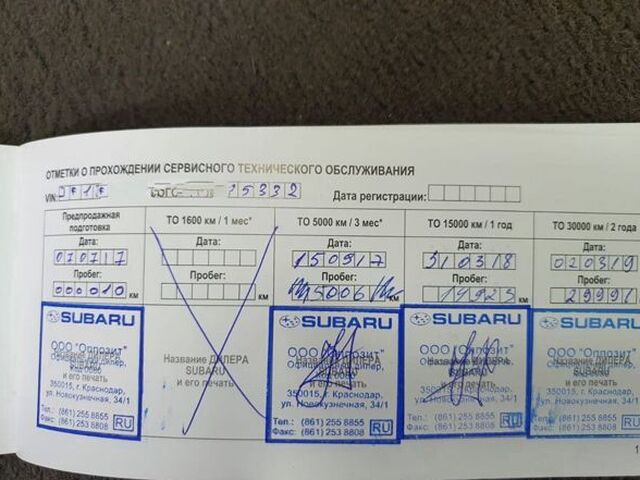 ОТМЕТКИ О ПРОХОЖДЕНИИ СЕРВИСНОГО ТЕХНИЧЕСКОГО ОБСЛУЖИВАНИЯ
VIN: 15332 Дата регистрации:
Предпродажная подготовка
Дата:
070717
Пробег:
000010 км
SUBARU
ООО "Оппозит"
Название ДИЛЕРА
SUBARU
и его печать
350015, г. Краснодар,
ул. Новокузнечная, 34/1
Тел.: (861) 255 8855
Факс: (861) 253 8808 RU
ТО 1600 км / 1 мес*
Дата:
Пробег:
км
Название ДИЛЕРА
SUBARU
и его печать
ТО 5000 км / 3 мес*
Дата:
150917
Пробег:
5006 км
SUBARU
ООО "Оппозит"
Название ДИЛЕРА
Официальный дилер,
и его печать
350015, г. Краснодар,
ул. Новокузнечная, 34/1
Тел.: (861) 255 8855
Факс: (861) 253 8808 RU
ТО 15000 км / 1 год
Дата:
310318
Пробег:
км
SUBARU
ООО "Оппозит"
Название ДИЛЕРА
Официальный дилер,
и его печать
350015, г. Краснодар,
ул. Новокузнечная, 34/1
Тел.: (861) 255 8855
Факс: (861) 253 8808 RU
ТО 30000 км / 2 года
Дата:
020319
Пробег:
29991
SUBARU
ООО "Оппозит"
Название ДИЛЕРА
и его печать
350015, г. Краснодар,
ул. Новокузнечная, 34/1
Тел.: (861) 255 8855
Факс: (861) 253 8808